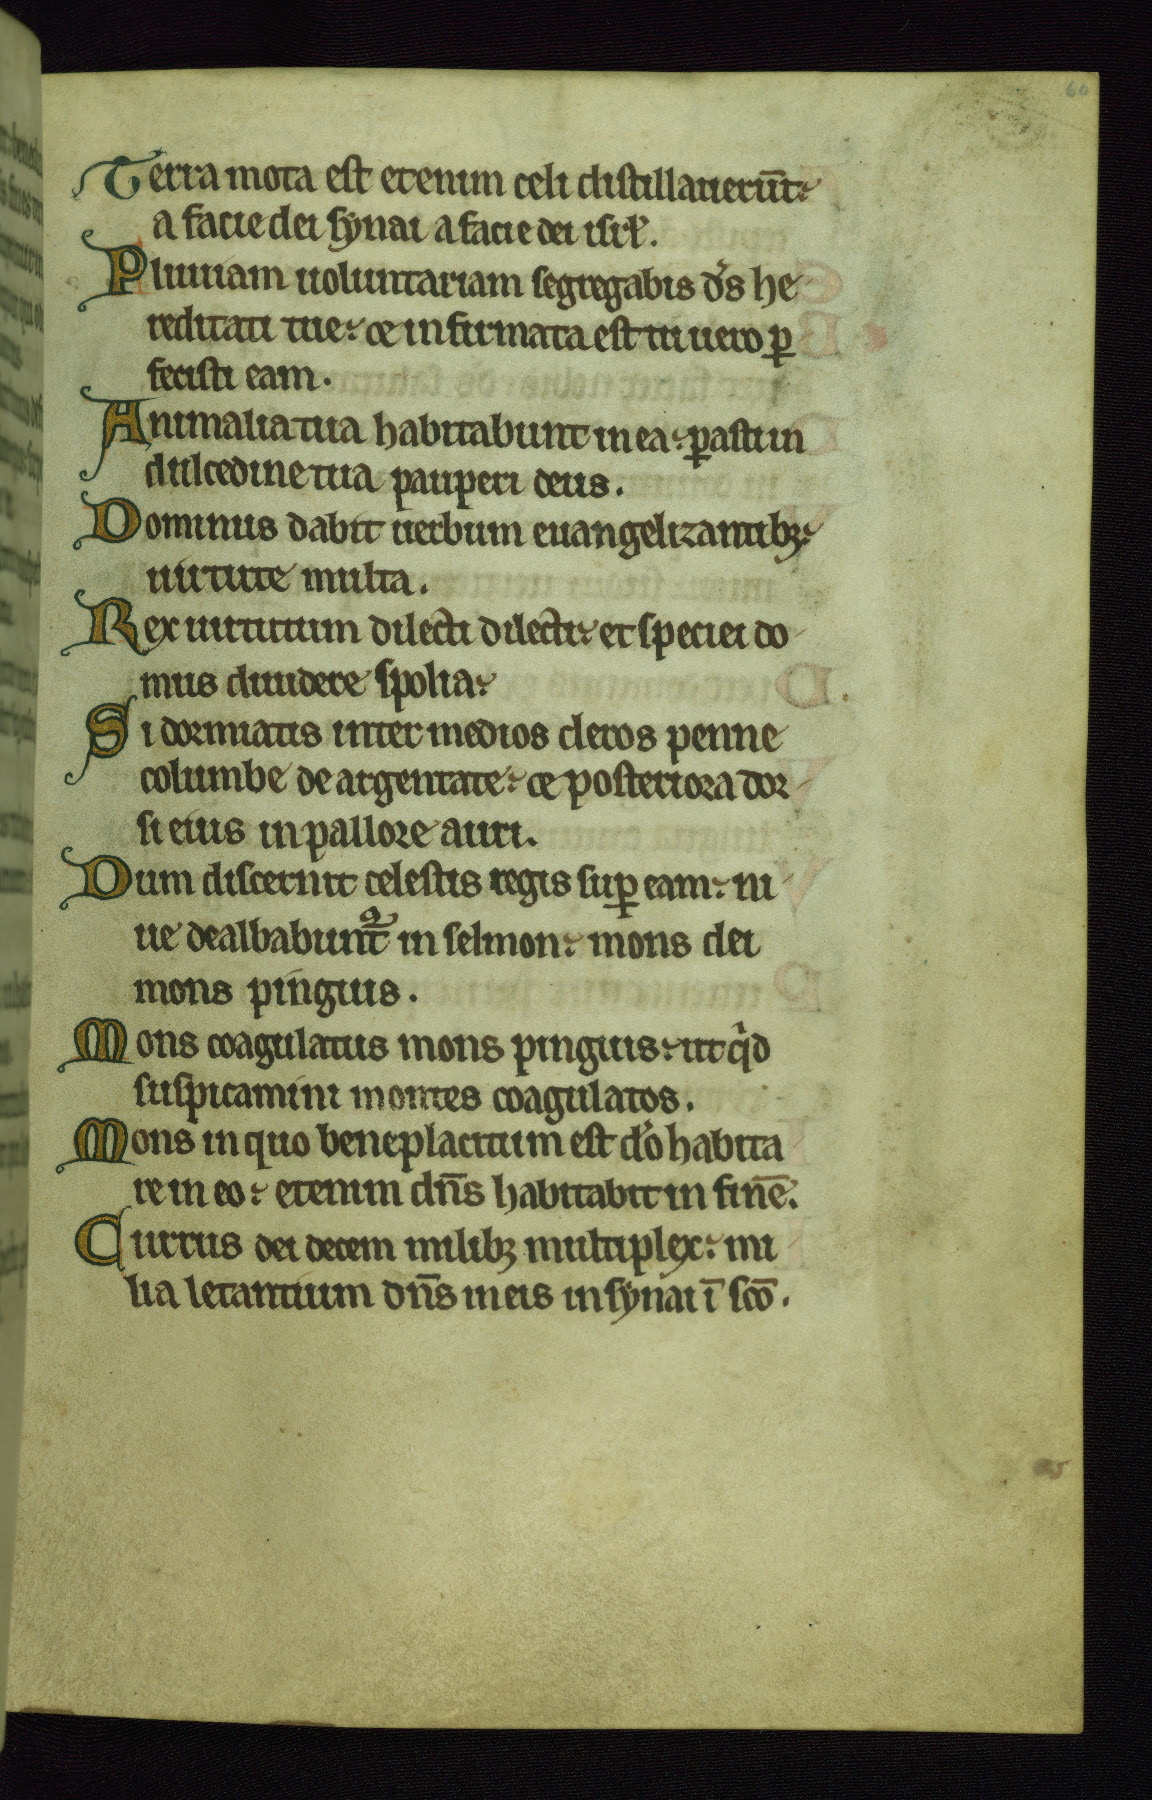 60
Terra mota est etenim celi distillauerūt
a facie dei synai a facie dei isrł.
Pluuiam uoluntariam segregabis ds he
reditati tue: et infirmata est tu uero ꝑ
fecisti eam.
Animalia tua habitabunt in ea: parasti in
dulcedine tua pauperi deus.
Dominus dabit uerbum euangelizantibꝫ:
uirtute multa.
Rex uirtutum dilecti dilecti: et speciei do
mus diuidere spolia:
Si dormiatis inter medios cleros penne
columbe de argentate: et posteriora dor
si eius in pallore auri.
Dum discernit celestis reges suꝑ eam: ni
ue dealbabunt᷑ in selmon: mons dei
mons pinguis.
Mons coagulatus mons pinguis: ut qͥd
suspicamini montes coagulatos.
Mons in quo beneplacitum est do habita
re in eo: etenim dn̄s habitabit in finē.
Currus dei decem milibꝫ multiplex: mi
lia letantium dn̄s in eis in synai ī sc̄o.